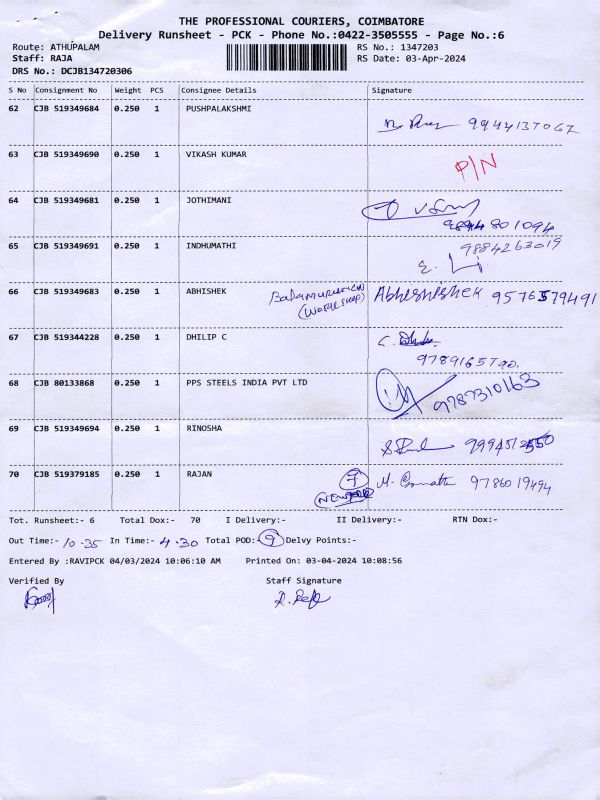 THE PROFESSIONAL COURIERS, COIMBATORE
Delivery Runsheet - PCK - Phone No.:0422-3505555 - Page No.:6
Route: ATHUPALAM RS No.: 1347203
Staff: RAJA RS Date: 03-Apr-2024
DRS No.: DCJB134720306
S No Consignment No Weight PCS Consignee Details Signature
62 CJB 519349684 0.250 1 PUSHPALAKSHMI
9944137067
63 CJB 519349690 0.250 1 VIKASH KUMAR P/N
64 CJB 519349681 0.250 1 JOTHIMANI
9894801094
65 CJB 519349691 0.250 1 INDHUMATHI 9884263019
66 CJB 519349683 0.250 1 ABHISHEK 9576579491
(WORKSHOP)
67 CJB 519344228 0.250 1 DHILIP C C.
68 CJB 80133868 0.250 1 PPS STEELS INDIA PVT LTD 9787310163
69 CJB 519349694 0.250 1 RINOSHA
70 CJB 519379185 0.250 1 RAJAN 7 9786019494
Tot. Runsheet:- 6 Total Dox:- 70 I Delivery:- II Delivery:- RTN Dox:-
Out Time:- 10-35 In Time:- 4-30 Total POD:- 9 Delvy Points:-
Entered By :RAVIPCK 04/03/2024 10:06:10 AM Printed On: 03-04-2024 10:08:56
Verified By Staff Signature